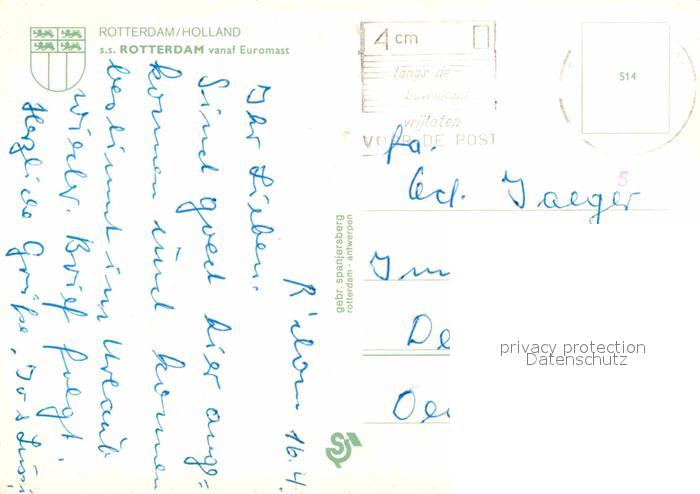 ROTTERDAM/HOLLAND
s.s. ROTTERDAM vanaf Euromast
4 cm
langs de
bovenkant
vrijlaten
VOOR DE POST
514
5
R'dam 16.4.
Ihr Lieben.
Sind gut hier ange=
kommen und kommen
bestimmt im Urlaub
wieder. Brief folgt.
Herzliche Grüße,
gebr. spanjersberg
rotterdam - antwerpen
fa.
Jaeger
Im
De
privacy protection
Datenschutz